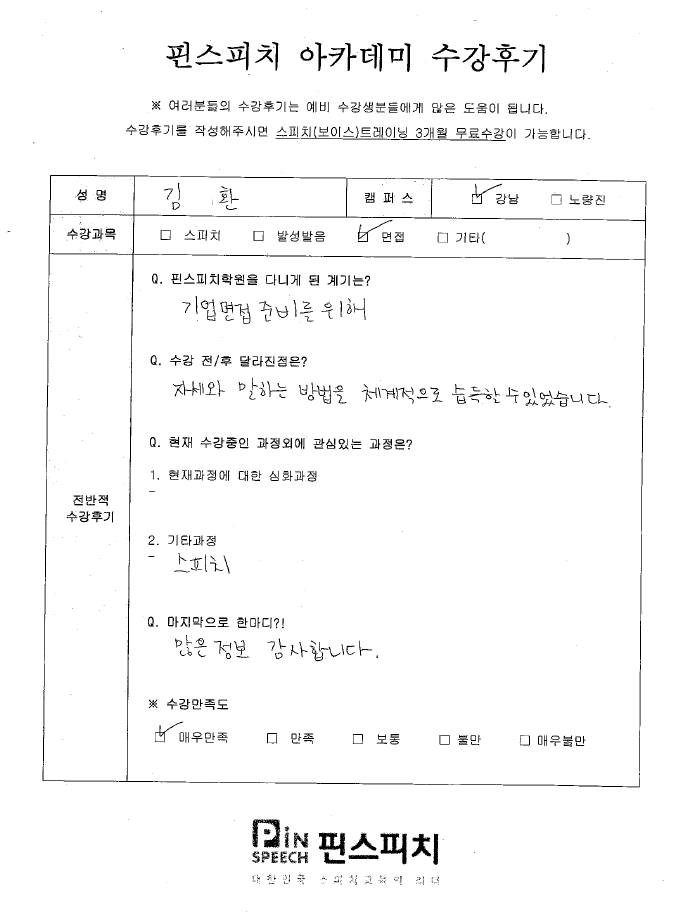 핀스피치 아카데미 수강후기
※ 여러분들의 수강후기는 예비 수강생분들에게 많은 도움이 됩니다.
수강후기를 작성해주시면 스피치(보이스)트레이닝 3개월 무료수강이 가능합니다.
성 명 김 환 캠 퍼 스 ☑ 강남 □ 노량진
수강과목 □ 스피치 □ 발성발음 ☑ 면접 □ 기타( )
Q. 핀스피치학원을 다니게 된 계기는?
기업면접 준비를 위해
Q. 수강 전/후 달라진점은?
자세와 말하는 방법을 체계적으로 습득한 수 있었습니다.
Q. 현재 수강중인 과정외에 관심있는 과정은?
1. 현재과정에 대한 심화과정
-
전반적
수강후기
2. 기타과정
- 스피치
Q. 마지막으로 한마디?!
많은 정보 감사합니다.
※ 수강만족도
☑ 매우만족 □ 만족 □ 보통 □ 불만 □ 매우불만
PiN
SPEECH 핀스피치
대한민국 스피치교육의 리더